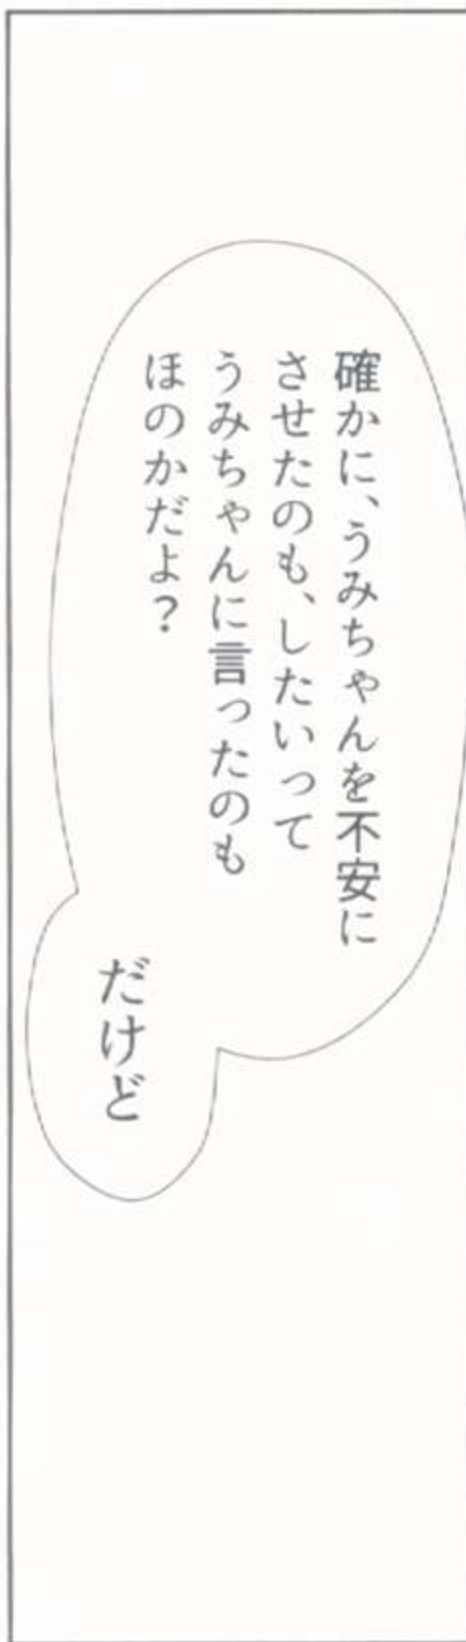 確かに、うみちゃんを不安に
させたのも、したいって
うみちゃんに言ったのも
ほのかだよ？
だけど